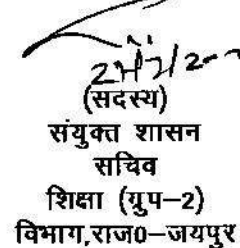 (सदस्य)
संयुक्त शासन
सचिव
शिक्षा (ग्रुप–2)
विभाग,राज0–जयपुर